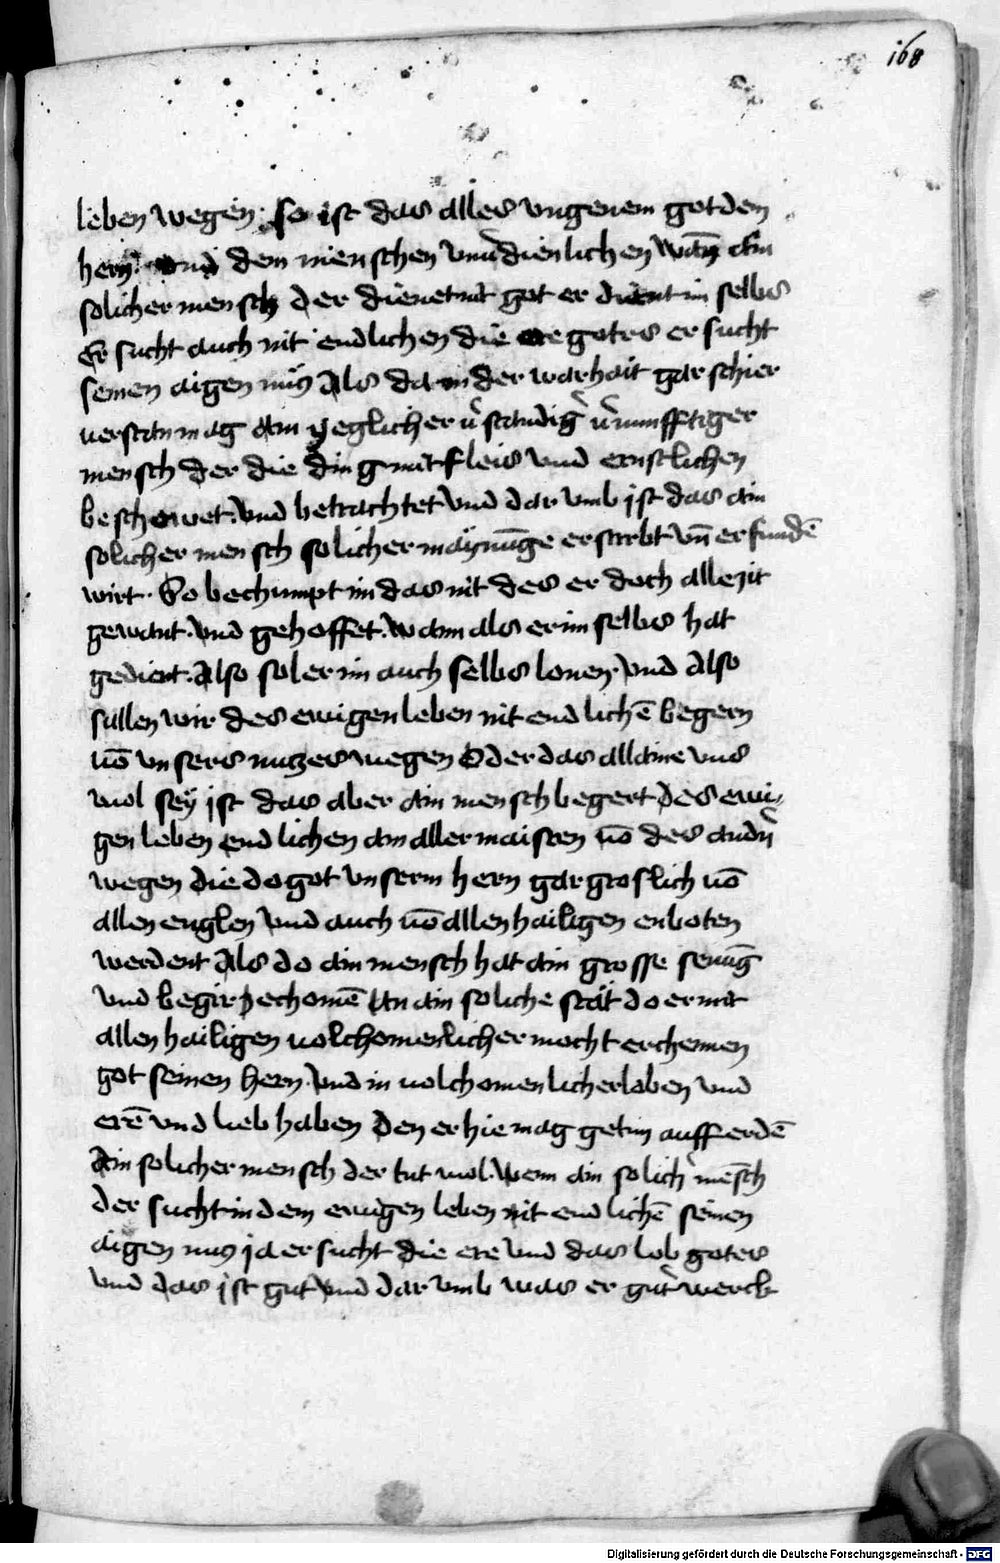 168
leben wegen · so ist das alles vngenem got dem
hern · vnd dem menschen vnuͦdienlichen wañ ain
solicher mensch der dienet nit got er dient im selbs
Er sucht auch nit endlichen die ere gotes er sucht
seinen aigen nucz Als dann der warhait gar schier
uerstan mag ain yeglicher v̉standig̉ v̉nunfftiger
mensch der die ding mit fleis vnd ernstlichen
beschowet · vnd betrachtet vnd dar vmb ist das ain
solicher mensch solicher maynūge erstirbt vn̄ erfundē
wirt · So bechumpt im das nit des er doch allezit
gewant · vnd gehoffet · wann als er im selbs hat
gedient · Also sol er im auch selbs lonen · vnd also
sullen wir des ewigen leben nit endlichē begern
uō vnsers nutzes wegen Oder das allaine vns
wol sey ist das aber ain mensch begert des ewi⸗
gen leben endlichen am aller maisten uō des andn̉
wegen die do got vnserm hern gar groslich uō
allen englen vnd auch uō allen hailigen enboten
werdent Als do ain mensch hat ain grosse senūg
vnd begir zechomē an ain soliche stat do er mit
allen hailigen uolchomenlicher mocht erchennen
got seinen hern · vnd in uolchomenlicher loben vnd
erē vnd lieb haben den er hie mag getun auff erdē
Ain solicher mensch der tut wol · wenn ain solich̉ mēsch
der sucht in dem ewigen leben nit endlichē seinen
aigen nucz ja er sucht die ere vnd das lob gotes
vnd das ist gut vnd dar vmb was er gut̉ werck
Digitalisierung gefördert durch die Deutsche Forschungsgemeinschaft - DFG